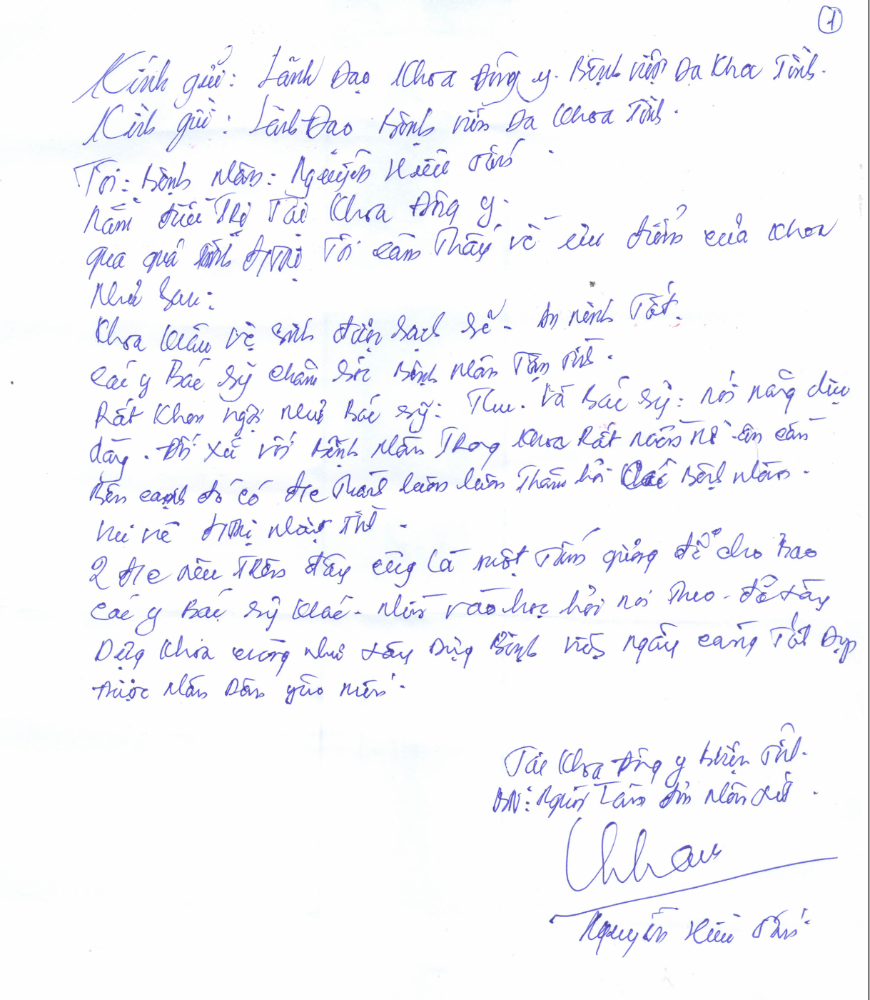 1
Kính gửi: Lãnh Đạo Khoa Đông y. Bệnh viện Đa Khoa Tỉnh.
Kính gửi: Lãnh Đạo Bệnh viện Đa Khoa Tỉnh.
Tôi: Bệnh Nhân: Nguyễn Hữu
Nằm điều Trị Tại Khoa Đông y.
qua quá Tôi cảm Thấy về ưu điểm của Khoa
Như Sau:
Khoa vệ sinh sạch sẽ. An ninh Tốt.
các y Bác sỹ chăm sóc Bệnh Nhân Tận
Rất Khen ngợi như Bác sỹ: Thu. Và Bác sỹ: nói năng dịu
dàng. Đối xử với Bệnh Nhân Trong Khoa Rất ân cần
Bên cạnh đó có luôn luôn Thăm hỏi các Bệnh Nhân.
vui vẻ
2 nêu Trên đây cũng Là một Tấm gương để cho
các y Bác sỹ Khác. Nhìn vào học hỏi noi Theo. để xây
Dựng Khoa cũng như xây Dựng Bệnh viện ngày càng Tốt Đẹp
được Nhân Dân yêu mến.
Tại Khoa Đông y
BN: Người Làm đơn
Nguyễn Hữu